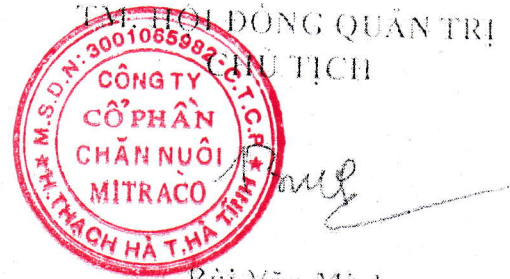 TM. HỘI ĐỒNG QUẢN TRỊ
CHỦ TỊCH
M.S.D.N: 3001065982-C.T.C.P
CÔNG TY
CỔ PHẦN
CHĂN NUÔI
MITRACO
H.THẠCH HÀ T.HÀ TĨNH